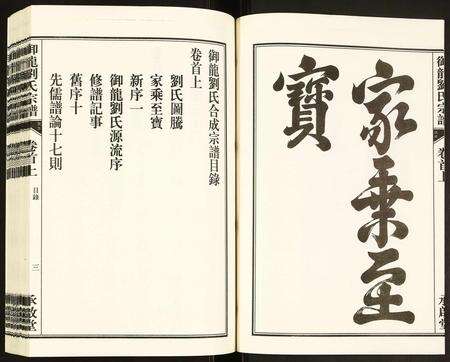 家乗至
寶
御龍劉氏宗譜
卷首上
承啟堂
御龍劉氏合成宗譜目錄
卷首上
劉氏圖騰
家乘至寶
新序一
御龍劉氏源流序
修譜記事
舊序十
先儒譜論十七則
御龍劉氏宗譜
卷首上
目錄
三
承啟堂